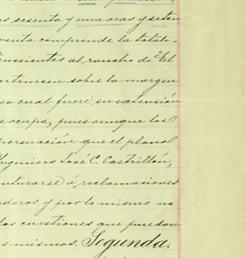 as sesenta y una aras y seten
venta comprende la totali-
ransientas al rancho de "El
artenense sobre la margen
sea cual fuere su extensión
se ocupa, pues aunque los
persuación que el plano
Ingeniero José C. Castrillón,
enturarse á reclamaciones
aderos y por lo mismo no
las cuestiones que puedan
os mismos. Segunda.